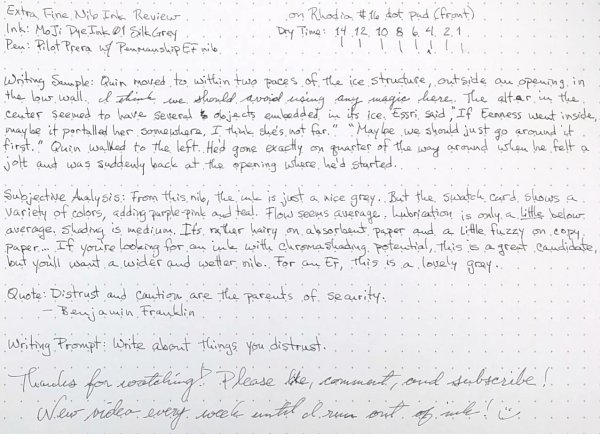 Extra Fine Nib Ink Review
on Rhodia #16 dot pad (front)
Ink: MoJi Dye Ink 01 Silk Grey
Dry Time: 14 12 10 8 6 4 2 1
Pen: Pilot Prera w/ Penmanship EF nib
Writing Sample: Quin moved to within two paces of the ice structure, outside an opening in
the low wall. I think we should avoid using any magic here. The altar in the
center seemed to have several objects embedded in its ice. Essri said, "If Eenness went inside,
maybe it portalled her somewhere. I think she's not far." "Maybe we should just go around it
first." Quin walked to the left. He'd gone exactly on quarter of the way around when he felt a
jolt and was suddenly back at the opening where he'd started.
Subjective Analysis: From this nib, the ink is just a nice grey. But the swatch card shows a
variety of colors, adding purple-pink and teal. Flow seems average. Lubrication is only a little below
average. Shading is medium. It's rather hairy on absorbent paper and a little fuzzy on copy
paper... If you're looking for an ink with chromashading potential, this is a great candidate,
but you'll want a wider and wetter nib. For an EF, this is a lovely grey.
Quote: Distrust and caution are the parents of security.
— Benjamin Franklin
Writing Prompt: Write about things you distrust.
Thanks for watching! Please like, comment, and subscribe!
New video every week until I run out of ink! :)